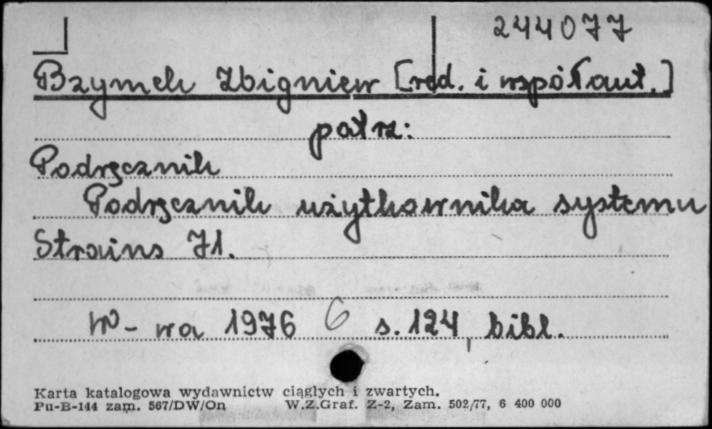 244077
Bzymek Zbigniew [red. i współaut.]
patrz:
Podręcznik
Podręcznik użytkownika systemu
Strains 71.
W-wa 1976 6 s. 124, bibl.
Karta katalogowa wydawnictw ciągłych i zwartych.
Pu-B-144 zam. 567/DW/On W.Z.Graf. Z-2, Zam. 502/77, 6 400 000